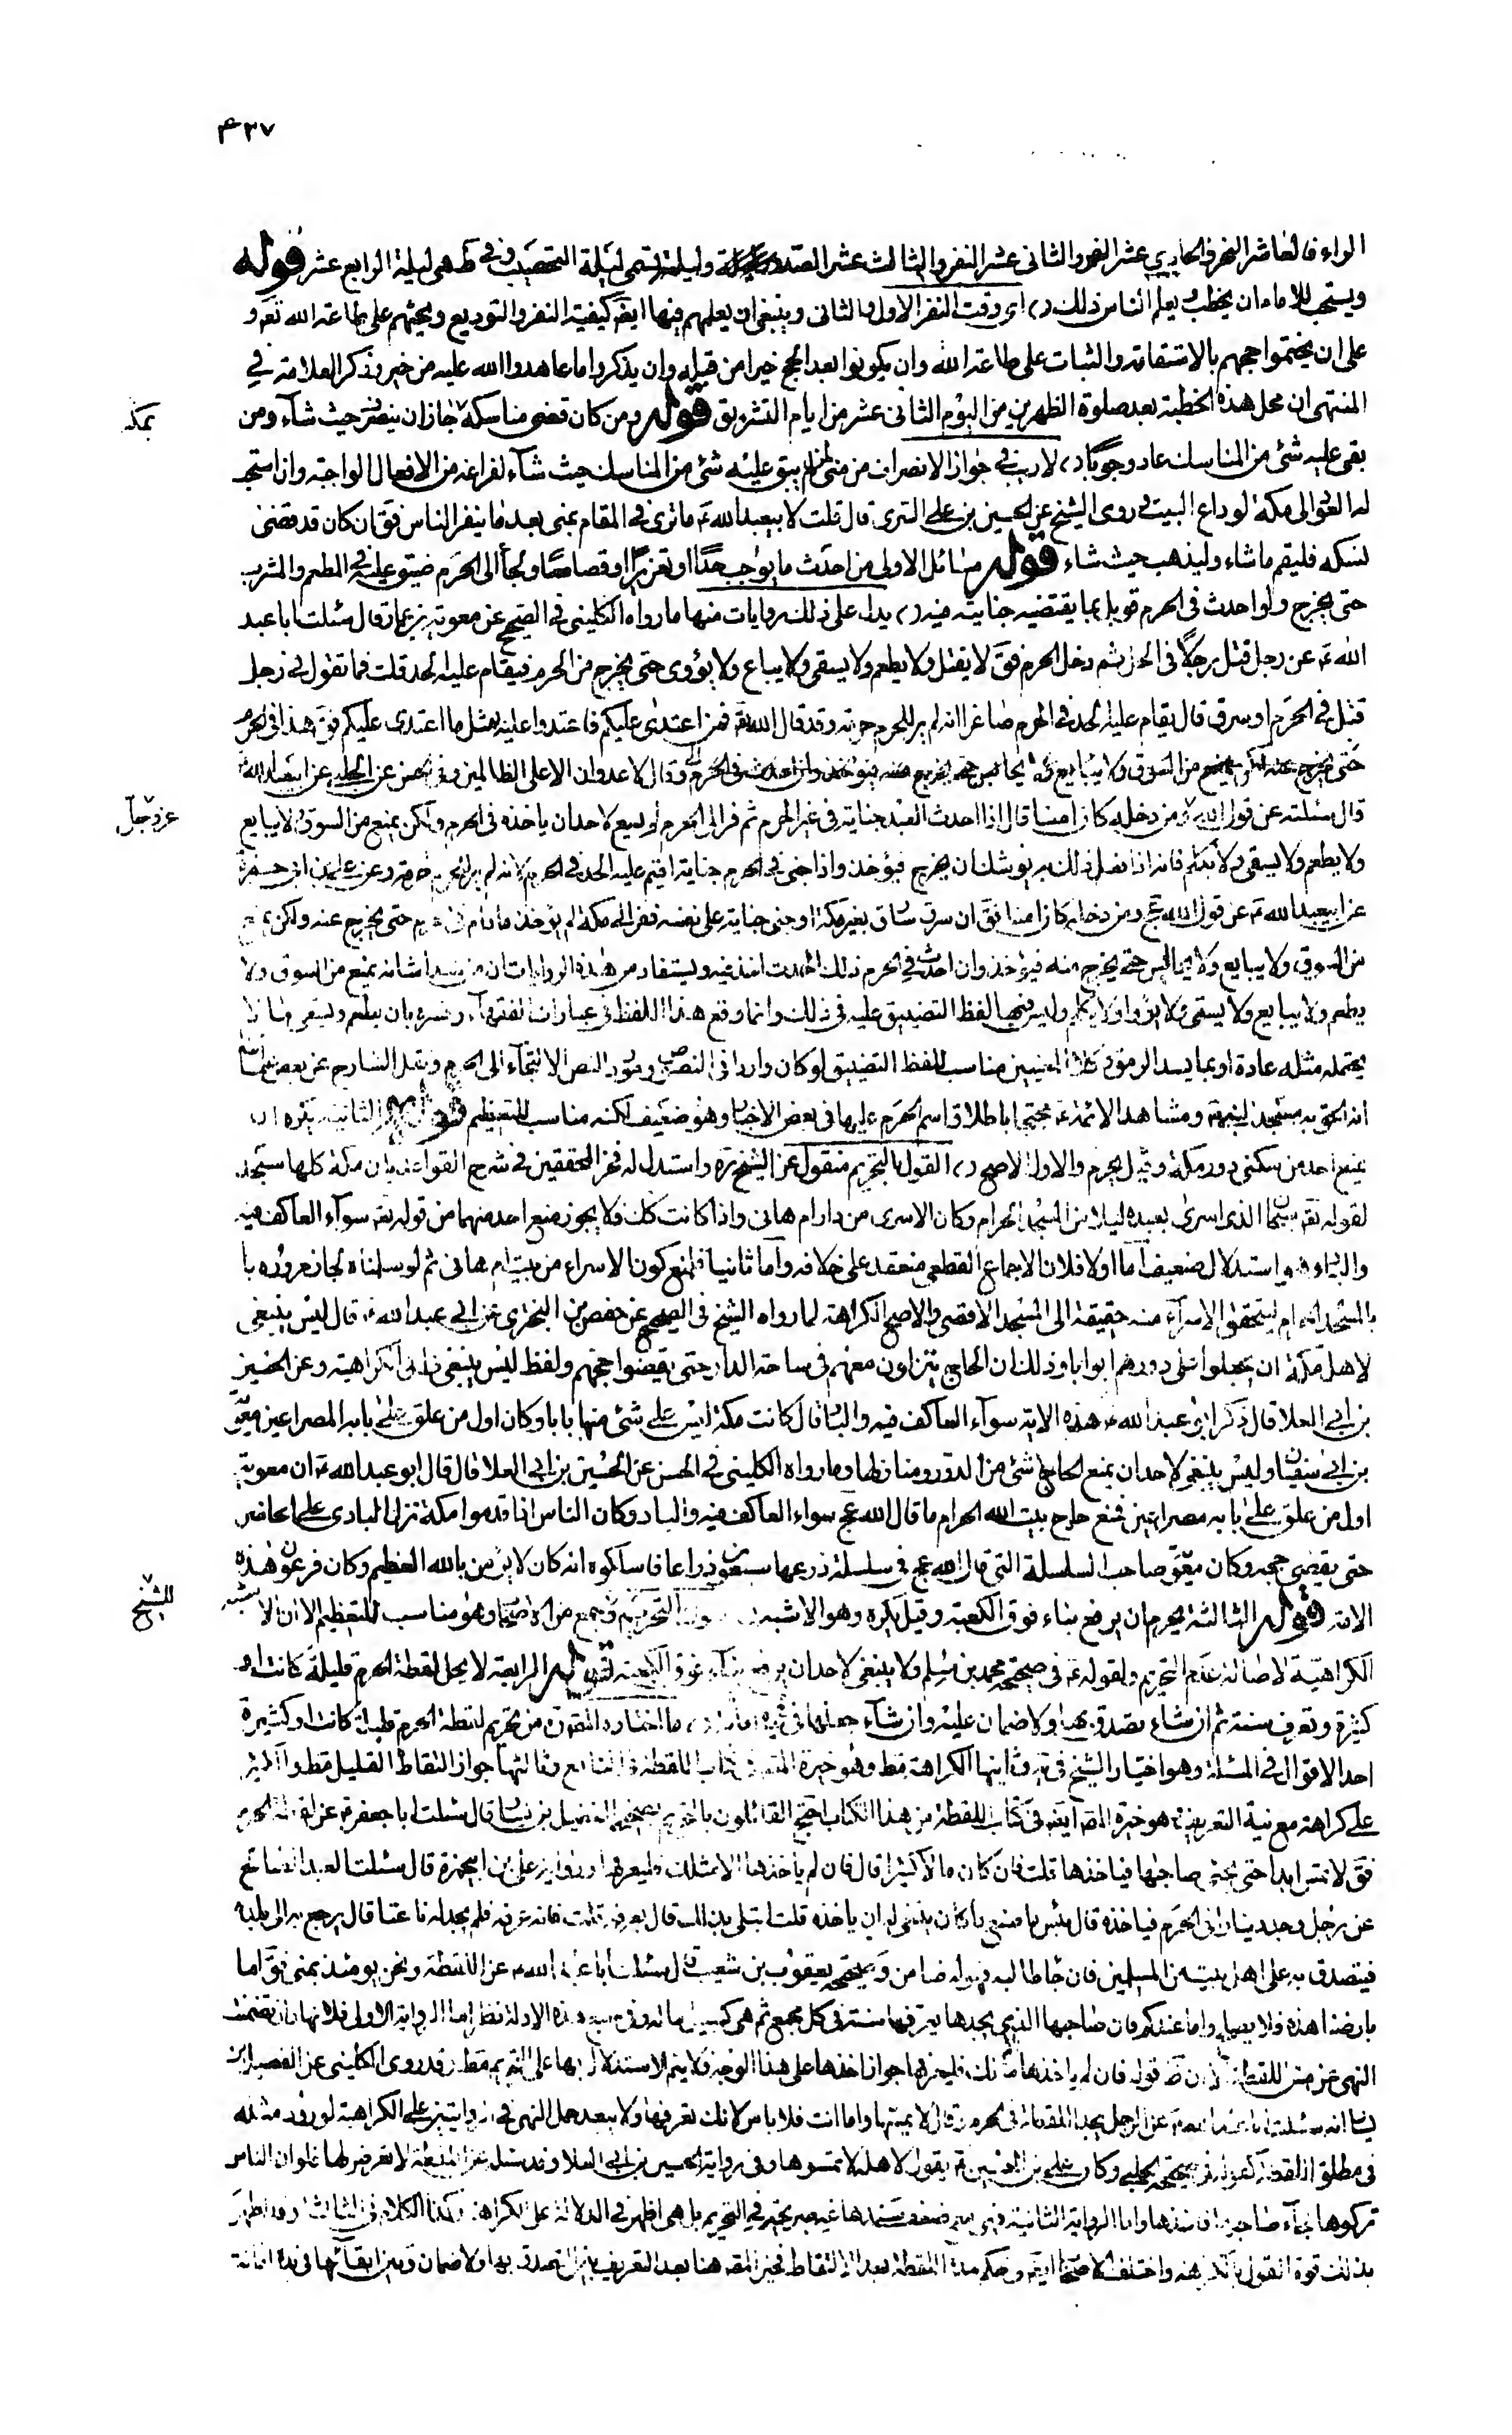 ٤٣٧
الواء فالعاشر النحر والحادي عشر النفر والثانى عشر النفر والثالث عشر الصدر وليلته تسمى ليلة التحصيب وفى ط هى ليلة الرابع عشر قوله
ويستحب للامام ان يخطب ويعلم الناس ذلك اى وقت النفر الاول والثانى وينبغى ان يعلمهم فيها ايضا كيفية النفر والتوديع ويحثهم على طاعة الله تعه و
على ان يختموا حجهم بالاستقامة والثبات على طاعة الله وان يكونوا بعد الحج خيرا من قبله وان يذكروا ما عاهدوا الله عليه من خير وذكر العلامة في
المنتهى ان محل هذه الخطبة بعد صلوة الظهرين من اليوم الثانى عشر من ايام التشريق قوله ومن كان قضى مناسكه جاز ان ينصرف حيث شآء ومن
بمكة
بقى عليه شئ من المناسك عاد وجوبا لا ريب في جواز الانصراف من منى لمن لم يبق عليه شئ من المناسك حيث شآء لفراغه من الافعال الواجبة وان استحب
له العود الى مكة لوداع البيت روى الشيخ عن الحسين بن على السرى قال قلت لابيعبد الله ع ما ترى في المقام بمنى بعد ما ينفر الناس فق ان كان قد قضى
نسكه فليقم ما شاء وليذهب حيث شاء قوله مسائل الاولى من احدث ما يوجب حدا او تعزيرا او قصاصا ولجأ الى الحرم ضيق عليه في المطعم والمشرب
حتى يخرج ولو احدث فى الحرم قوبل بما يقتضيه جنايته فيه يدل على ذلك روايات منها ما رواه الكلينى في الصحيح عن معوية بن عمار قال سئلت ابا عبد
الله ع عن رجل قتل رجلا فى الحل ثم دخل الحرم فق لا يقتل ولا يطعم ولا يسقى ولا يباع ولا يؤوى حتى يخرج من الحرم فيقام عليه الحد قلت فما تقول في رجل
قتل في الحرم او سرق قال يقام عليه الحد في الحرم صاغرا انه لم ير للحرم حرمة وقد قال الله تعه فمن اعتدى عليكم فاعتدوا عليه بمثل ما اعتدى عليكم فق هذا فى الحرم
وقال لا عدوان الا على الظالمين وفى الحسن عن الحلبى عن ابيعبد الله ع
قال سئلته عن قول الله ومن دخله كان امنا قال اذا احدث العبد جناية فى غير الحرم ثم فر الى الحرم لم يسع لاحد ان ياخذه فى الحرم ولكن يمنع من السوق ولا يبايع
عز وجل
ولا يطعم ولا يسقى ولا يكلم فانه اذا فعل ذلك به يوشك ان يخرج فيؤخذ واذا جنى في الحرم جناية اقيم عليه الحد في الحرم لانه لم ير للحرم حرمة وعن على بن ابى حمزة
عن ابيعبد الله ع عن قول الله عج ومن دخله كان امنا فق ان سرق سارق بغير مكة او جنى جناية على نفسه ففر الى مكة لم يؤخذ ما دام في الحرم حتى يخرج عنه ولكن يمنع
من السوق ولا يبايع ولا يجالس حتى يخرج منه فيؤخذ وان احدث في الحرم ذلك الحدث اخذ فيه ويستفاد من هذه الروايات ان من هذا شانه يمنع من السوق ولا
يطعم ولا يبايع ولا يسقى ولا يؤوا ولا يكلم وليس فيها لفظ التضييق عليه فى ذلك وانما وقع هذا اللفظ في عبارات الفقهآء وفسره بان يطعم ويسقى ما لا
يحتمله مثله عادة او بما يسد الرمق وكلا المعنيين مناسب للفظ التضييق لو كان واردا فى النصوص ومورد النص الالتجآء الى الحرم ونقل الشارح عن بعض علمائنا
انه الحق به مسجد النبى ومشاهد الائمة ع محتجا باطلاق اسم الحرم عليها فى بعض الاخبار وهو ضعيف لكنه مناسب للتعظيم قوله الثانية يكره ان
يمنع احد من سكنى دور مكة وقيل يحرم والاول الاصح القول بالتحريم منقول عن الشيخ ره واستدل له فخر المحققين في شرح القواعد بان مكة كلها مسجد
لقوله تعه سبحان الذى اسرى بعبده ليلا من المسجد الحرام وكان الاسرى من دار ام هانى واذا كانت كذلك فلا يجوز منع احد منهما من قوله تعه سوآء العاكف فيه
والباد وهو استدلال ضعيف اما اولا فلان الاجماع القطعى منعقد على خلافه واما ثانيا فلمنع كون الاسراء من بيت ام هانى ثم لو سلمناه لجاز مروره با
بالمسجد الحرام ليتحقق الاسرآء منه حقيقة الى المسجد الاقصى والاصح الكراهة لما رواه الشيخ فى الصحيح عن حفص بن البخترى عن ابى عبد الله ع قال ليس ينبغى
لاهل مكة ان يجعلوا على دورهم ابوابا وذلك ان الحاج ينزلون معهم فى ساحة الدار حتى يقضوا حجهم ولفظ ليس ينبغى ظاهر فى الكراهية وعن الحسين
بن ابى العلا قال ذكر ابو عبد الله ع هذه الاية سوآء العاكف فيه والباد قال كانت مكة ليس على شئ منها باب وكان اول من علق على بابه المصراعين معوية
بن ابى سفيان وليس ينبغى لاحد ان يمنع الحاج شئ من الدور ومنازلها وما رواه الكلينى في الحسن عن الحسين بن ابى العلا قال قال ابو عبد الله ع ان معوية
اول من علق على بابه مصراعين فمنع حاج بيت الله الحرام ما قال الله عج سواء العاكف فيه والباد وكان الناس اذا قدموا مكة نزل البادى على الحاضر
حتى يقضى حجه وكان معوية صاحب السلسلة التى قال الله عج فى سلسلة ذرعها سبعون ذراعا فاسلكوه انه كان لا يؤمن بالله العظيم وكان فرعون هذه
الامة قوله الثالثة يحرم ان يرفع بناء فوق الكعبة وقيل يكره وهو الاشبه القول بالتحريم للشيخ وجمع من الاصحاب وهو مناسب للتعظيم الا ان الاشبه
للشيخ
الكراهية لاصالة عدم التحريم ولقوله ع فى صحيحة محمد بن مسلم ولا ينبغى لاحد ان يرفع بناء فوق الكعبة قوله الرابعة لا يحل لقطة الحرم قليلة كانت او
كثيرة وتعرف سنة ثم ان شاء تصدق بها ولا ضمان عليه وان شآء جعلها فى يده امانة ما اختاره المصنف من تحريم لقطة الحرم قليلة كانت او كثيرة
احد الاقوال فى المسئلة وهو اختيار الشيخ فى يه وثانيها الكراهة مط وهو خيرة المصنف فى كتاب اللقطة وثالثها جواز التقاط القليل مط والكثير
على كراهة مع نية التعريف وهو خيرة المص ايضا فى كتاب اللقطة من هذا الكتاب احتج القائلون بالتحريم بصحيحة الفضيل بن يسار قال سئلت ابا جعفر ع عن لقطة الحرم
فق لا تمس ابدا حتى يجئ صاحبها فياخذها قلت فان كان مالا كثيرا قال فان لم ياخذها الا مثلك فليعرفها ورواية على بن ابيحمزة قال سئلت العبد الصالح
عن رجل وجد دينارا فى الحرم فياخذه قال بئس ما صنع ما كان ينبغى له ان ياخذه قلت ابتلى بذلك قال يعرفه قلت فانه عرفه فلم يجد له باغيا قال يرجع به الى بلده
فيتصدق به على اهل بيت من المسلمين فان جآء طالبه فهو له ضامن وصحيحة يعقوب بن شعيب قال سئلت ابا عبد الله ع عن اللقطة ونحن يومئذ بمنى فق اما
بارضنا هذه فلا يصلح واما عندكم فان صاحبها الذى يجدها يعرفها سنة فى كل مجمع ثم هى كسبيل ماله وفى جميع هذه الادلة نظر اما الرواية الاولى فلانها وان تضمنت
النهى عن مس اللقطة قوله فان لم ياخذها الا مثلك فليعرفها جواز اخذها على هذا الوجه فلا يتم الاستدلال بها على التحريم مط وقد روى الكلينى عن الفضيل بن
يسار انه سئلت ابا عبد الله ع عن الرجل يجد اللقطة فى الحرم قال لا يمسها واما انت فلا باس لانك تعرفها ولا يبعد حمل النهى على الكراهة لورود مثله
فى مطلق اللقطة كقوله فى صحيحة الحلبى وكان على بن الحسين ع يقول لاهله لا تمسوها وفى رواية الحسين بن ابى العلا وقد سئل عن اللقطة لا تعرض لها فلو ان الناس
تركوها لجآء صاحبها فاخذها واما الرواية الثانية فهى مع ضعف سندها غير صريحة في التحريم بل هى اظهر في الدلالة على الكراهة وكذا الكلام فى الثالثة وقد اظهر
بذلك قوة القول بالكراهة واختلف الاصحاب ايضا فى حكم هذه اللقطة بعد الالتقاط فخير المص هنا بعد التعريف بين التصدق بها ولا ضمان وبين ابقآئها فى يده امانة